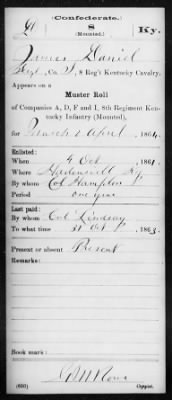 (Confederate.)
D 8 Ky.
(Mounted.)
James Daniel
Co. I, 8 Reg't Kentucky Cavalry.
Appears on a
Muster Roll
of Companies A, D, F and I, 8th Regiment Ken-
tucky Infantry (Mounted),
for March & April, 1864.
Enlisted:
When 4 Oct, 1861.
Where Ky
By whom Col Hampton
Period one year
Last paid:
By whom Col Lindsay
To what time 31 Oct, 1863.
Present or absent Present
Remarks:
Book mark:
(650) Copyist.